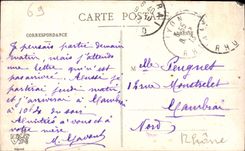 69
CARTE POSTALE
CORRESPONDANCE
ADRESSE
Je pensais partir demain
matin, mais j'attends
une lettre qui n'est
pas arrivée. Aussi je
partirai jeudi matin
et j'arriverai à Cambrai
à 10h du soir.
Amitiés à vous et à
votre mère
Melle Peugnet
12 rue Monstrelet
Cambrai
Nord
Rhône